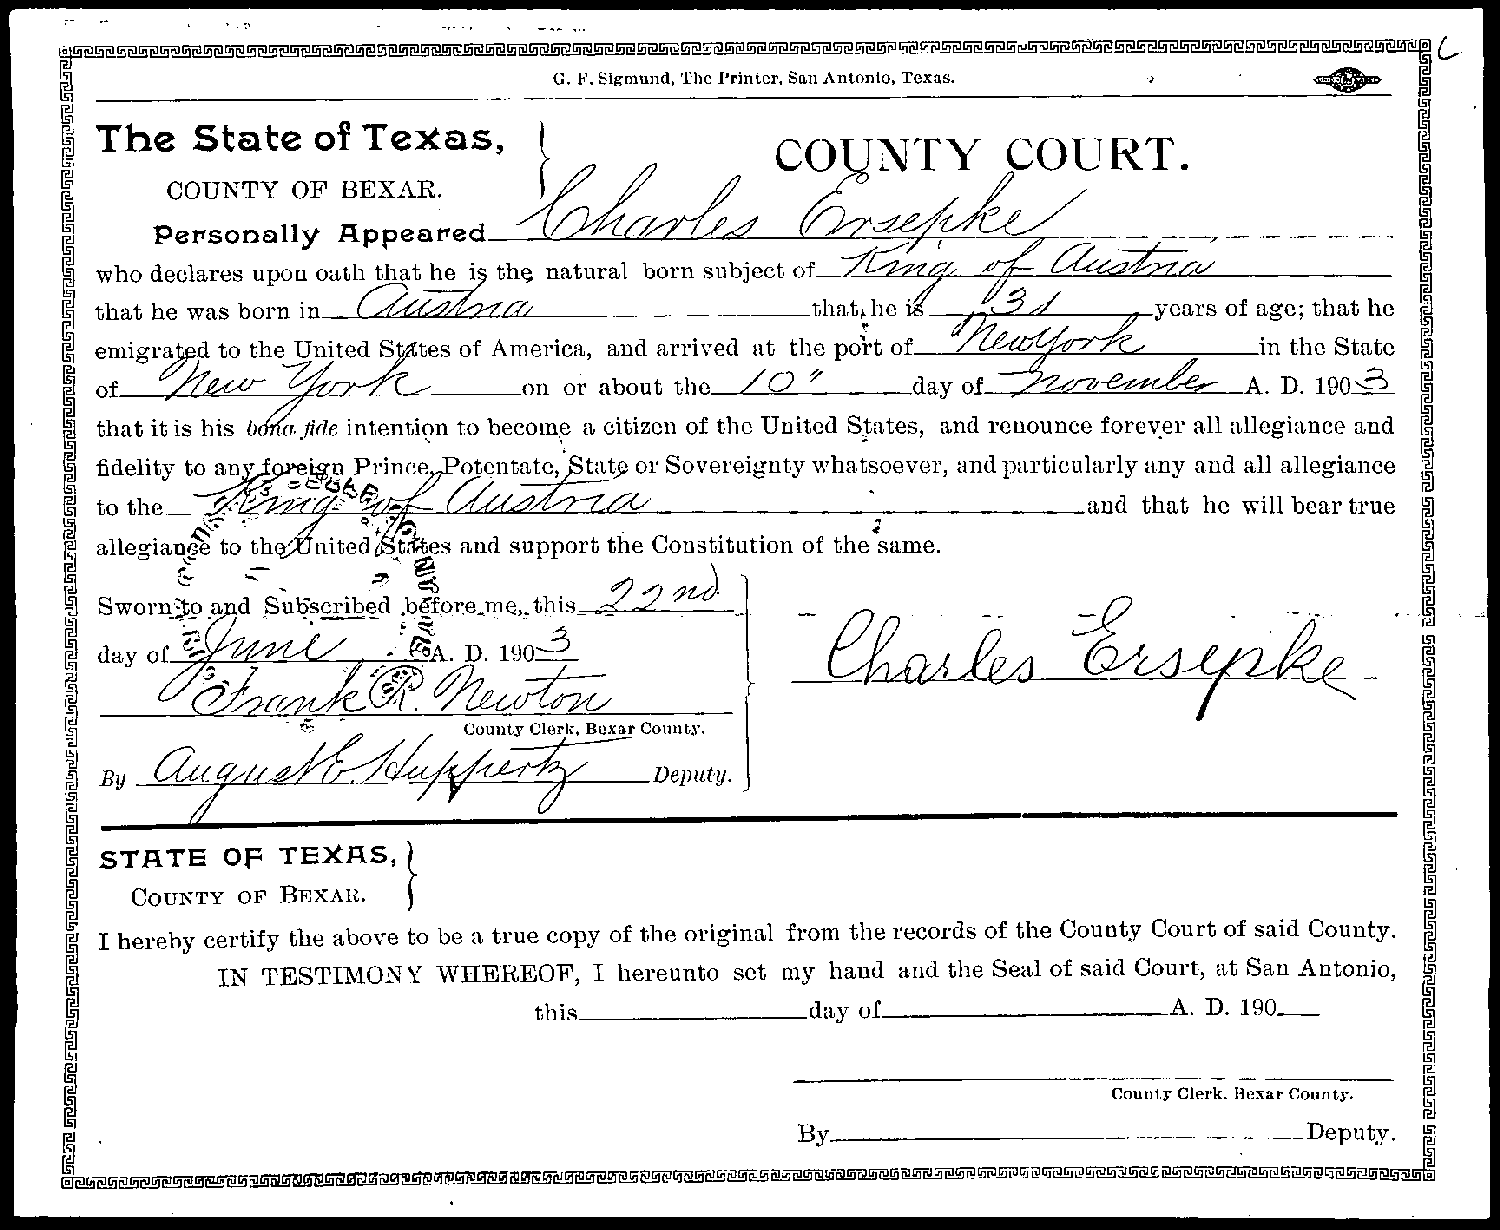 G. F. Sigmund, The Printer, San Antonio, Texas.
The State of Texas,
COUNTY OF BEXAR.
COUNTY COURT.
Personally Appeared Charles Ersepke
who declares upon oath that he is the natural born subject of King of Austria
that he was born in Austria that he is 31 years of age; that he
emigrated to the United States of America, and arrived at the port of New York in the State
of New York on or about the 10" day of November A. D. 1903
that it is his bona fide intention to become a citizen of the United States, and renounce forever all allegiance and
fidelity to any foreign Prince, Potentate, State or Sovereignty whatsoever, and particularly any and all allegiance
to the King of Austria and that he will bear true
allegiance to the United States and support the Constitution of the same.
Sworn to and Subscribed before me, this 22nd
day of June A. D. 1903
Charles Ersepke
Frank R. Newton
County Clerk, Bexar County.
By August E. Huppertz Deputy.
STATE OF TEXAS,
COUNTY OF BEXAR.
I hereby certify the above to be a true copy of the original from the records of the County Court of said County.
IN TESTIMONY WHEREOF, I hereunto set my hand and the Seal of said Court, at San Antonio,
this day of A. D. 190
County Clerk. Bexar County.
By Deputy.